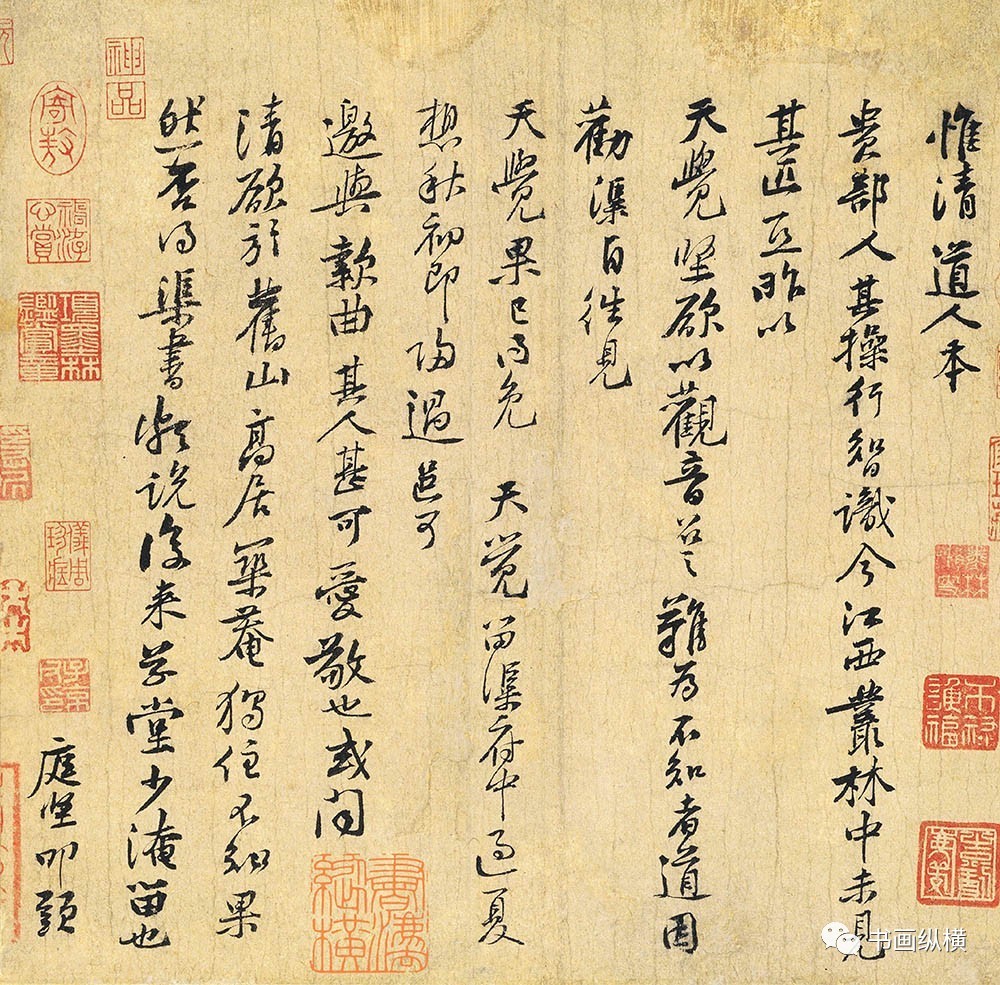 惟清道人本
貴部人其操行智識今江西叢林中未見
其匹亞昨以
天覺堅欲以觀音召之難為不知者道因
勸渠自往見
天覺果已得免 天覺留渠府中過夏
想秋初即歸過邑可
邀與款曲其人甚可愛敬也或聞
清欲於舊山高居築菴獨住不知果
然否得渠書頗說後來草堂少淹留也
庭堅叩頭
神品
項墨林鑑賞章
儀周珍藏
书画纵横